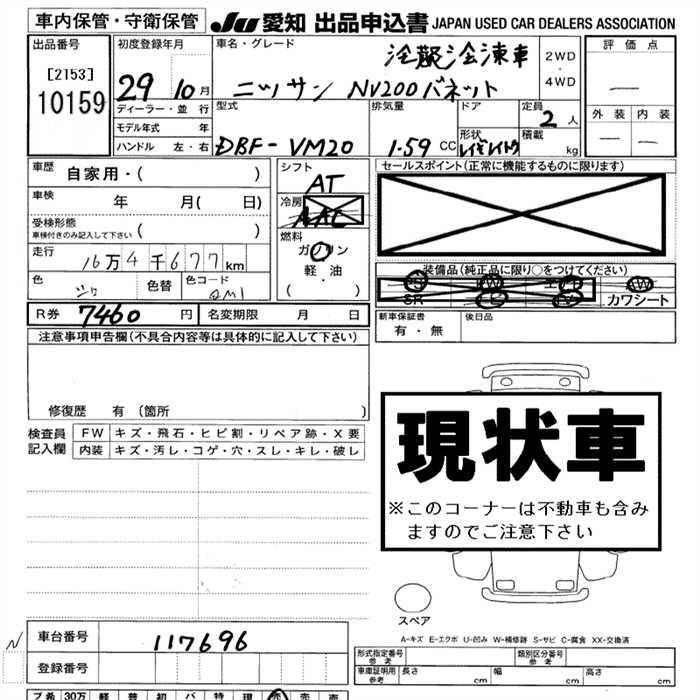 車内保管・守衛保管 JU 愛知 出品申込書 JAPAN USED CAR DEALERS ASSOCIATION
出品番号 初度登録年月 車名・グレード 冷蔵冷凍車 2WD・4WD 評価点
[2153] 29 10月 ニッサン NV200バネット
10159 ディーラー・並行 型式 排気量 ドア 定員 2人 外装 内装
モデル年式 年 形状 積載
ハンドル 左・右 DBF-VM20 1.59 CC kg
車歴 自家用・( ) シフト AT セールスポイント(正常に機能するものに限ります)
車検 年 月( 日) 冷房 AAC
受検形態 車検付きのみ記入して下さい ( ) 燃料 ガソリン
走行 16万4千677km 軽油
色 シロ 色替 色コード QM1 ( ・ ) 装備品(純正品に限り○をつけてください)
SR カワシート
R券 7460円 名変期限 月 日 新車保証書 有・無 後日品
注意事項申告欄(不具合内容等は具体的に記入して下さい)
修復歴 有(箇所 )
検査員記入欄 FW キズ・飛石・ヒビ割・リペア跡・X要
内装 キズ・汚レ・コゲ・穴・スレ・キレ・破レ
現状車
※このコーナーは不動車も含み
ますのでご注意下さい
スペア
A-キズ E-エクボ U-凹み W-補修跡 S-サビ C-腐食 XX-交換済
N 車台番号 117696
登録番号
型式指定番号 参考 類別区分番号 参考
車庫証明用 参考 長さ cm 幅 cm 高さ cm
プ希 30万 軽 普 初 バ 特 現 売 売 売